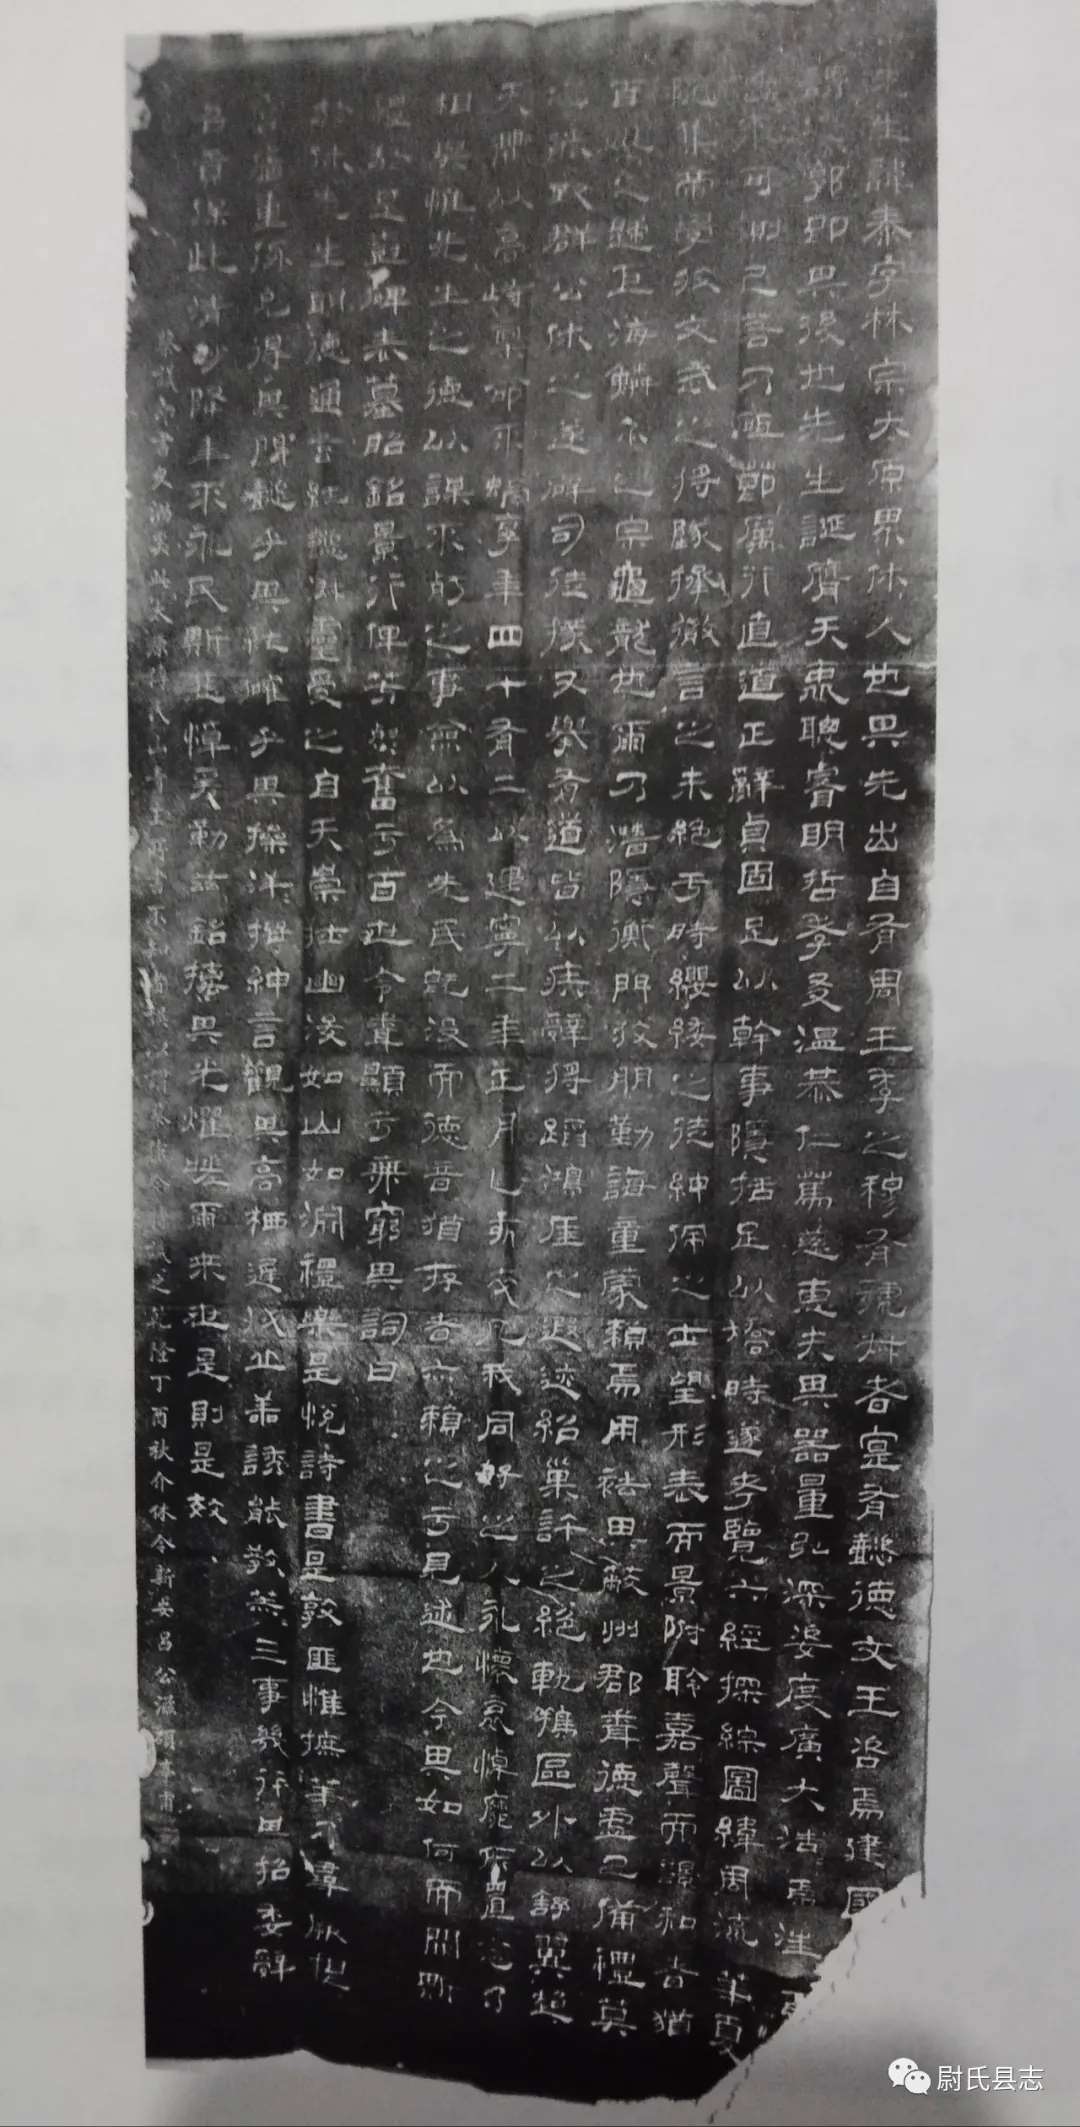 先生諱泰字林宗太原界休人也其先出自有周王季之穆有虢叔者寔有懿德文王咨焉建國
郭即其後也先生誕膺天衷聰睿明哲孝友温恭仁篤慈惠夫其器量弘深姿度廣大浩焉汪
不可測已若乃砥節厲行直道正辭貞固足以幹事隱括足以矯時遂考覽六經探綜圖緯周流華夏
隨集帝學收文武之將墜拯微言之未絶于時纓緌之徒紳佩之士望形表而景附聆嘉聲而響和者猶
百川之歸巨海鱗介之宗龜龍也爾乃潛隱衡門收朋勤誨童蒙賴焉用祛其蔽州郡聞德虚己備禮莫
之能致群公休之遂辟司徒掾又舉有道皆以疾辭將蹈鴻涯之遐迹紹巢許之絶軌翔區外以舒翼超
天衢以高峙稟命不融享年四十有二以建寧二年正月乙亥卒凡我同好之人永懷哀悼靡所寘念乃
相與惟先生之德以謀不朽之事僉以爲先民既没而德音猶存者亦賴之于見述也今其如何而闕斯
禮於是建碑表墓昭銘景行俾芳烈奮于百世令聞顯于無窮其詞曰
於休先生明德通玄純懿淑靈受之自天崇壯幽浚如山如淵禮樂是悦詩書是敦匪惟摭華乃尋厥根
宫墻重仞允得其門懿乎其純確乎其操洋洋搢紳言觀其高棲遲泌丘善誘能教赫赫三事幾行其招委辭
召貢保此清妙降年不永民斯悲悼爰勒兹銘摛其光耀嗟爾來世是則是效
乾隆丁酉秋介休令新安吕公滋
尉氏县志